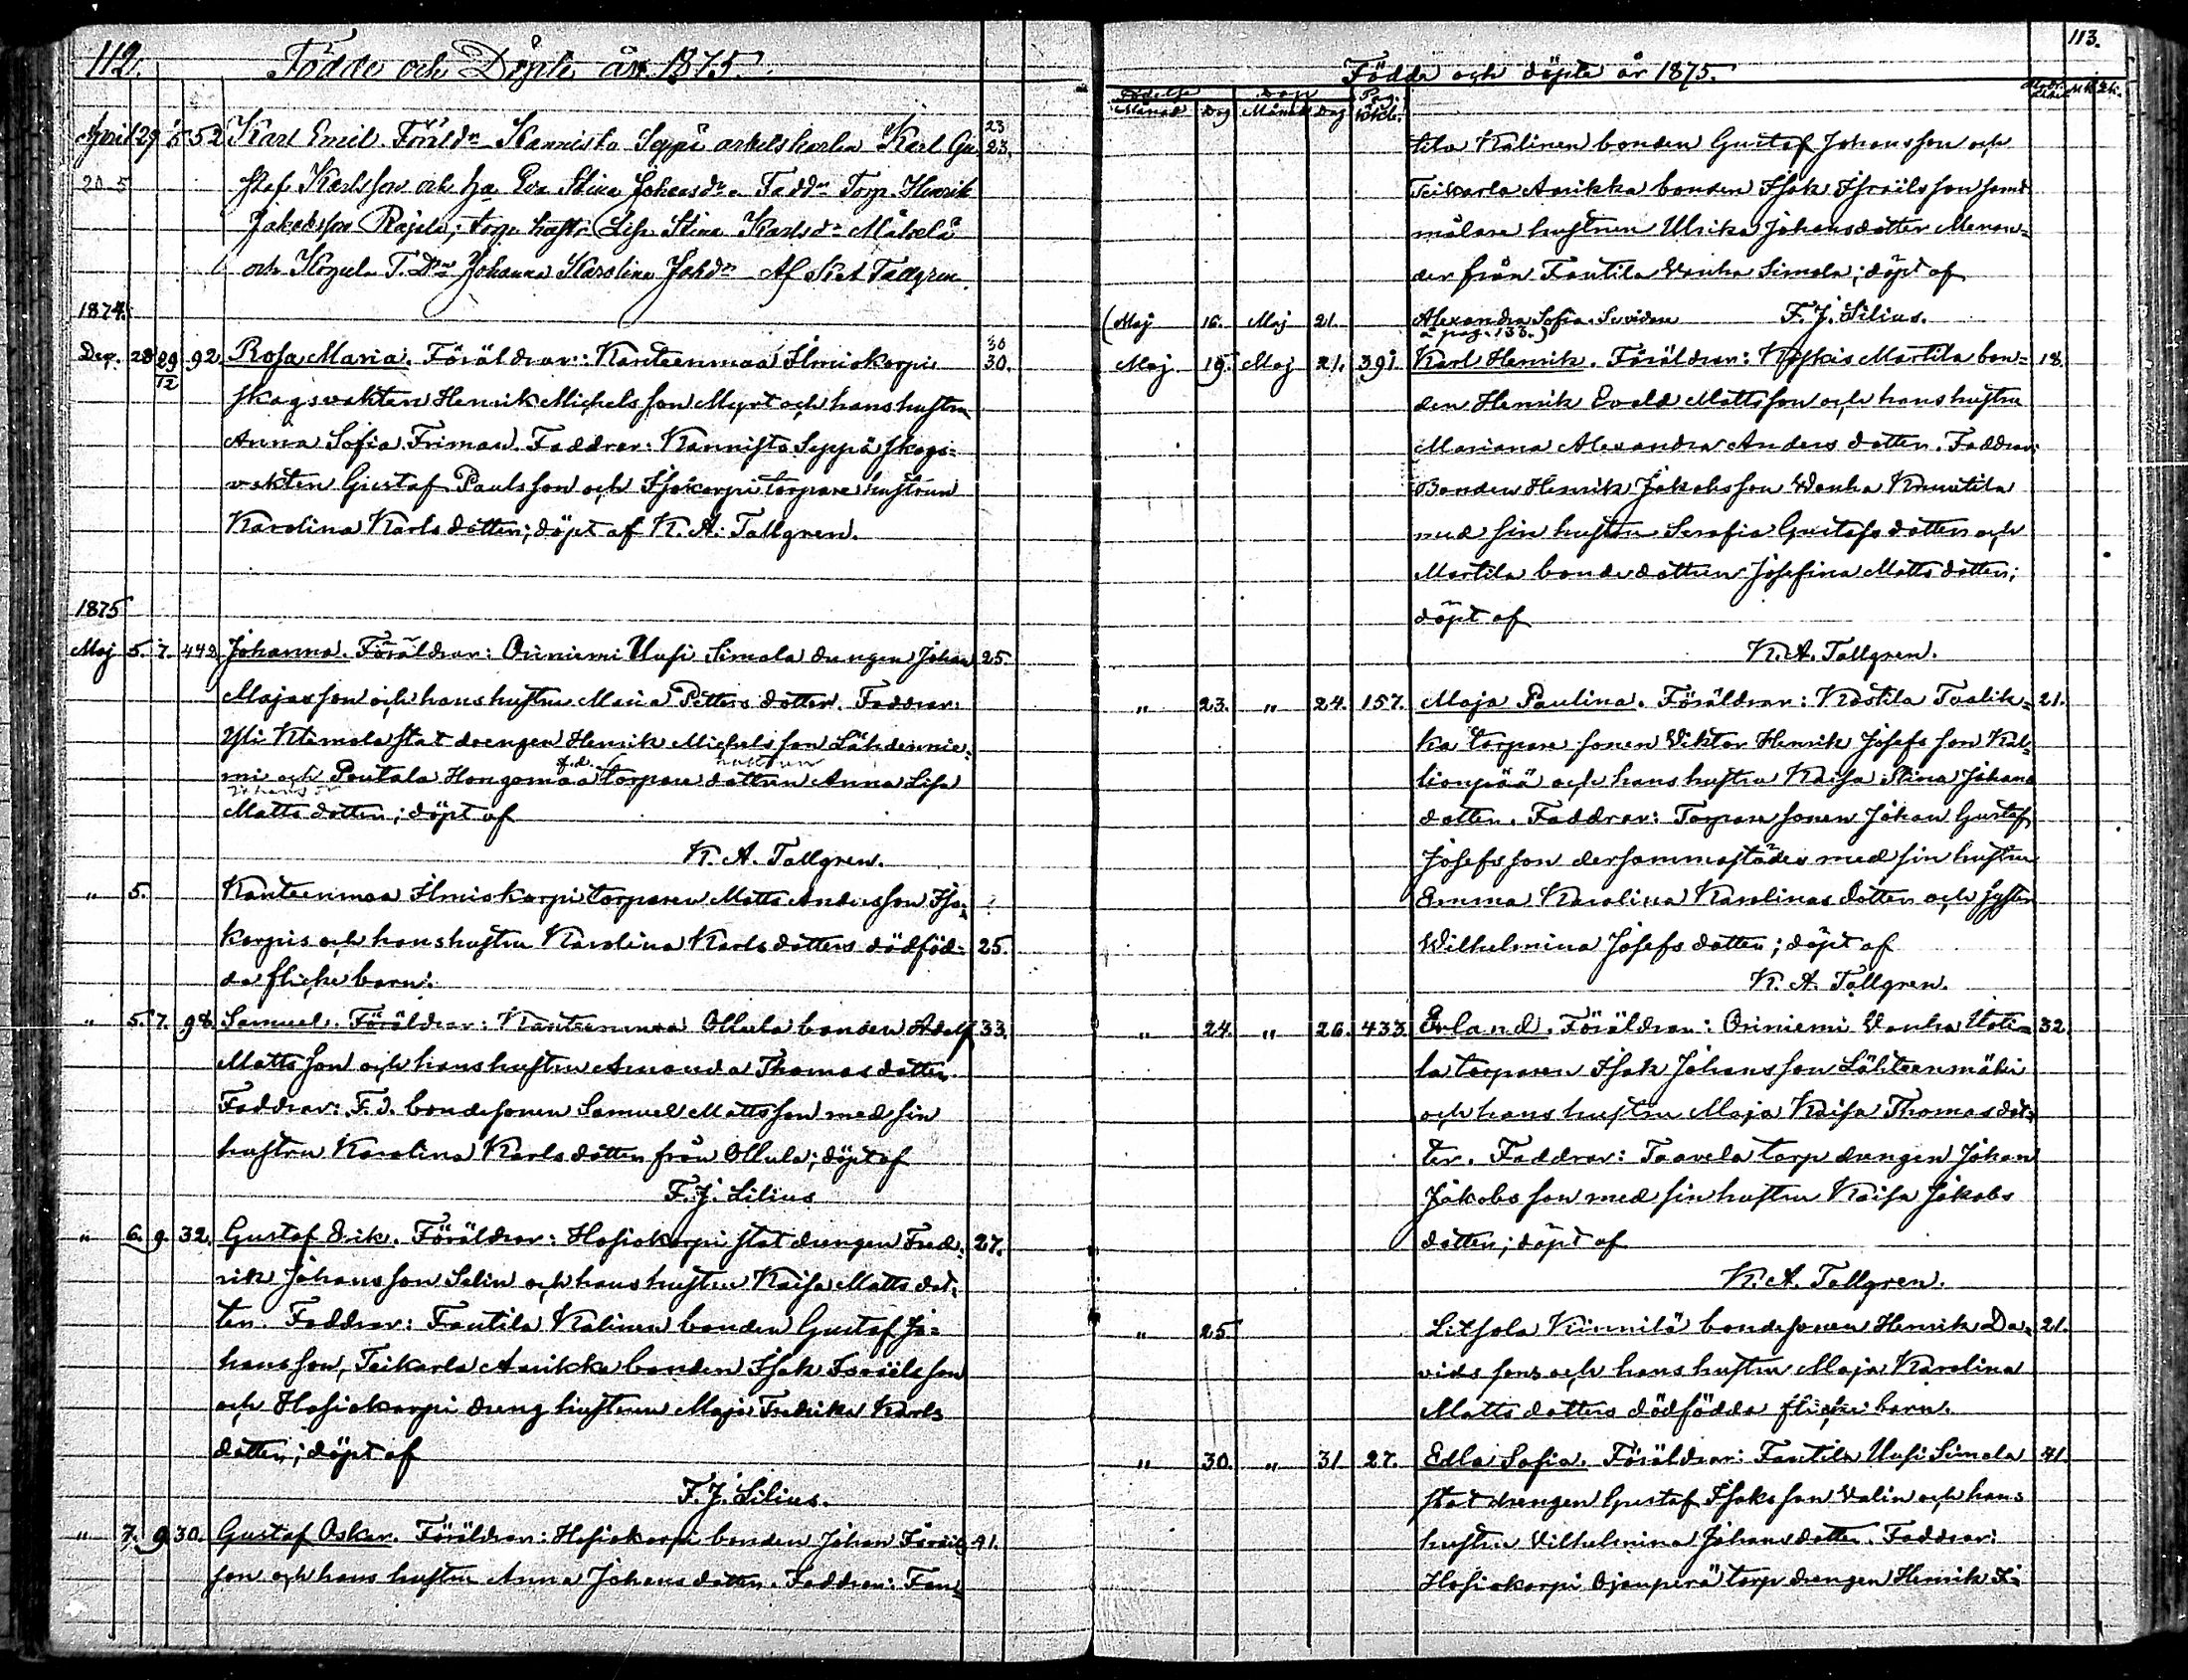 112.
Födde och Döpte år 1875.
April 29 5 52 Karl Emil. Föräld:r Kannisto Seppä arbetskarlen Karl Gu- 23 23.
20 5 staf Karlsson och h:u Eva Stina Johansd:r. Fadd:r Torp. Henrik
Jakobsson Rajala; torp. hustr. Lisa Stina Karlsd:r Mäkelä
och T. D:r Johanna Karolina Johd:r Af Tallgren.
1874.
Dec. 28 29/12 92. Rosa Maria. Föräldrar: Kanteenmaa Ilmiskorpi 30 30.
skogsvakten Henrik Michelsson Myrt och hans hustru
Anna Sofia Friman. Faddrar: Kannisto Seppä skogs=
vakten Gustaf Paulsson och Isokorpi torpare hustrun
Karolina Karlsdotter; döpt af K. A. Tallgren.
1875
Maj 5. 7. 442 Johanna. Föräldrar: Oriniemi Uusi Simola drengen Johan 25.
Majasson och hans hustru Maria Petters dotter. Faddrar:
Yli Klemola stat drengen Henrik Michelsson Lähdennie=
f.d. hustrun
mi och Poutala Hongomaa torpare dottren Anna Lisa
Johans dr
Matts dotter; döpt af
K. A. Tallgren.
" 5. Kanteenmaa Ilmiskorpi torparen Matts Andersson Iso= ?
korpis och hans hustru Karolina Karls dotters dödföd= 25.
da flicke barn.
" 5. 7. 98. Samuel. Föräldrar: Kanteenmaa Ollula bonden Adolf 33.
Matts son och hans hustru Amanda Thomas dotter.
Faddrar: F.d. bondesonen Samuel Mattsson med sin
hustru Karolina Karls dotter från Ollula; döpt af
F. J. Lilius
" 6. 9. 32. Gustaf Erik. Föräldrar: Hosiokorpi stat drengen Fred= 27.
rik Johansson Selin och hans hustru Kaisa Matts dot=
ter. Faddrar: Fautila Kälinen bonden Gustaf Jo=
hansson, Teikarla Anikka bonden Isak Israelsson
och Hosiokorpi dreng hustrun Maja Fredrika Karls
dotter; döpt af
F. J. Lilius.
" 7. 9 30. Gustaf Oskar. Föräldrar: Hosiokorpi bonden Johan Israels 41.
son och hans hustru Anna Johans dotter. Faddrar: Fau=
113.
Födde och döpte år 1875.
Födelse Dop Pag.
Månad Dag Månad Dag
tila Kälinen bonden Gustaf Johansson och
Teikarla Anikka bonden Isak Israilsson samt
målare hustrun Ulrika Johansdotter Menan=
der från Fautila Vanha Simola; döpt af
(Maj 16. Maj 21. Alexandra Sofia. Se vidare F. J. Lilius.
å pag. 133.)
Maj 19. Maj 21. 391. Karl Henrik. Föräldrar: Koskis Martila bon= 18.
den Henrik Evald Mattsson och hans hustru
Mariana Alexandra Anders dotter. Faddrar:
Bonden Henrik Jakobsson Vanha Knuutila
med sin hustru Serafia Gustafs dotter och
Martila bonde dottren Josefina Matts dotter;
döpt af
K. A. Tallgren.
" 23. " 24. 157. Maja Paulina. Föräldrar: Kostila Tvalik= 21.
ka torpare sonen Viktor Henrik Josefsson Kal=
lionpää och hans hustru Kaisa Stina Johans
dotter. Faddrar: Torpare sonen Johan Gustaf
Josefsson dersammastädes med sin hustru
Emma Karolina Karolinas dotter och syster
Wilhelmina Josefs dotter; döpt af
K. A. Tallgren.
" 24. " 26. 433. Erland. Föräldrar: Oriniemi Vanha Uoti= 32.
la torparen Isak Johansson Lähteenmäki
och hans hustru Maja Kaisa Thomas dot=
ter. Faddrar: Taavela torp drengen Johan
Jakobs son med sin hustru Kaisa Jakobs
dotter; döpt af
K. A. Tallgren.
" 25 Litsola Kinnilä bondesonen Henrik Da= 21.
vids sons och hans hustru Maja Karolina
Matts dotters dödfödda flicke barn.
" 30. " 31 27. Edla Sofia. Föräldrar: Fautila Uusi Simola 41
stat drengen Gustaf Isaksson Valin och hans
hustru Vilhelmina Johansdotter. Faddrar:
Hosiokorpi Ojanperä torp drengen Henrik